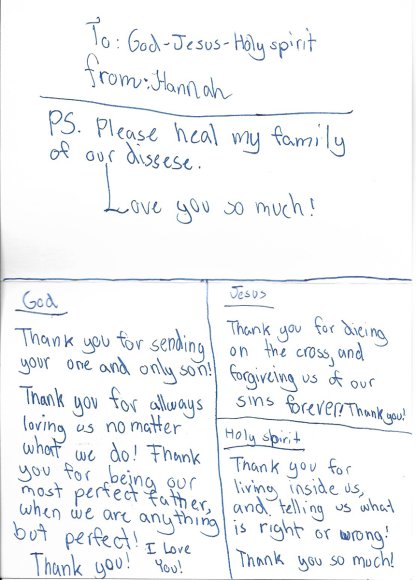 To: God-Jesus-Holy spirit
from: Hannah
PS. Please heal my family
of our dissese.
Love you so much!
God
Thank you for sending
your one and only son!
Thank you for allways
loving us no matter
what we do! Thank
you for being our
most perfect father,
when we are anything
but perfect!
Thank you!
I Love
You!
Jesus
Thank you for dieing
on the cross, and
forgiveing us of our
sins forever! Thank you!
Holy spirit
Thank you for
living inside us,
and telling us what
is right or wrong!
Thank you so much!